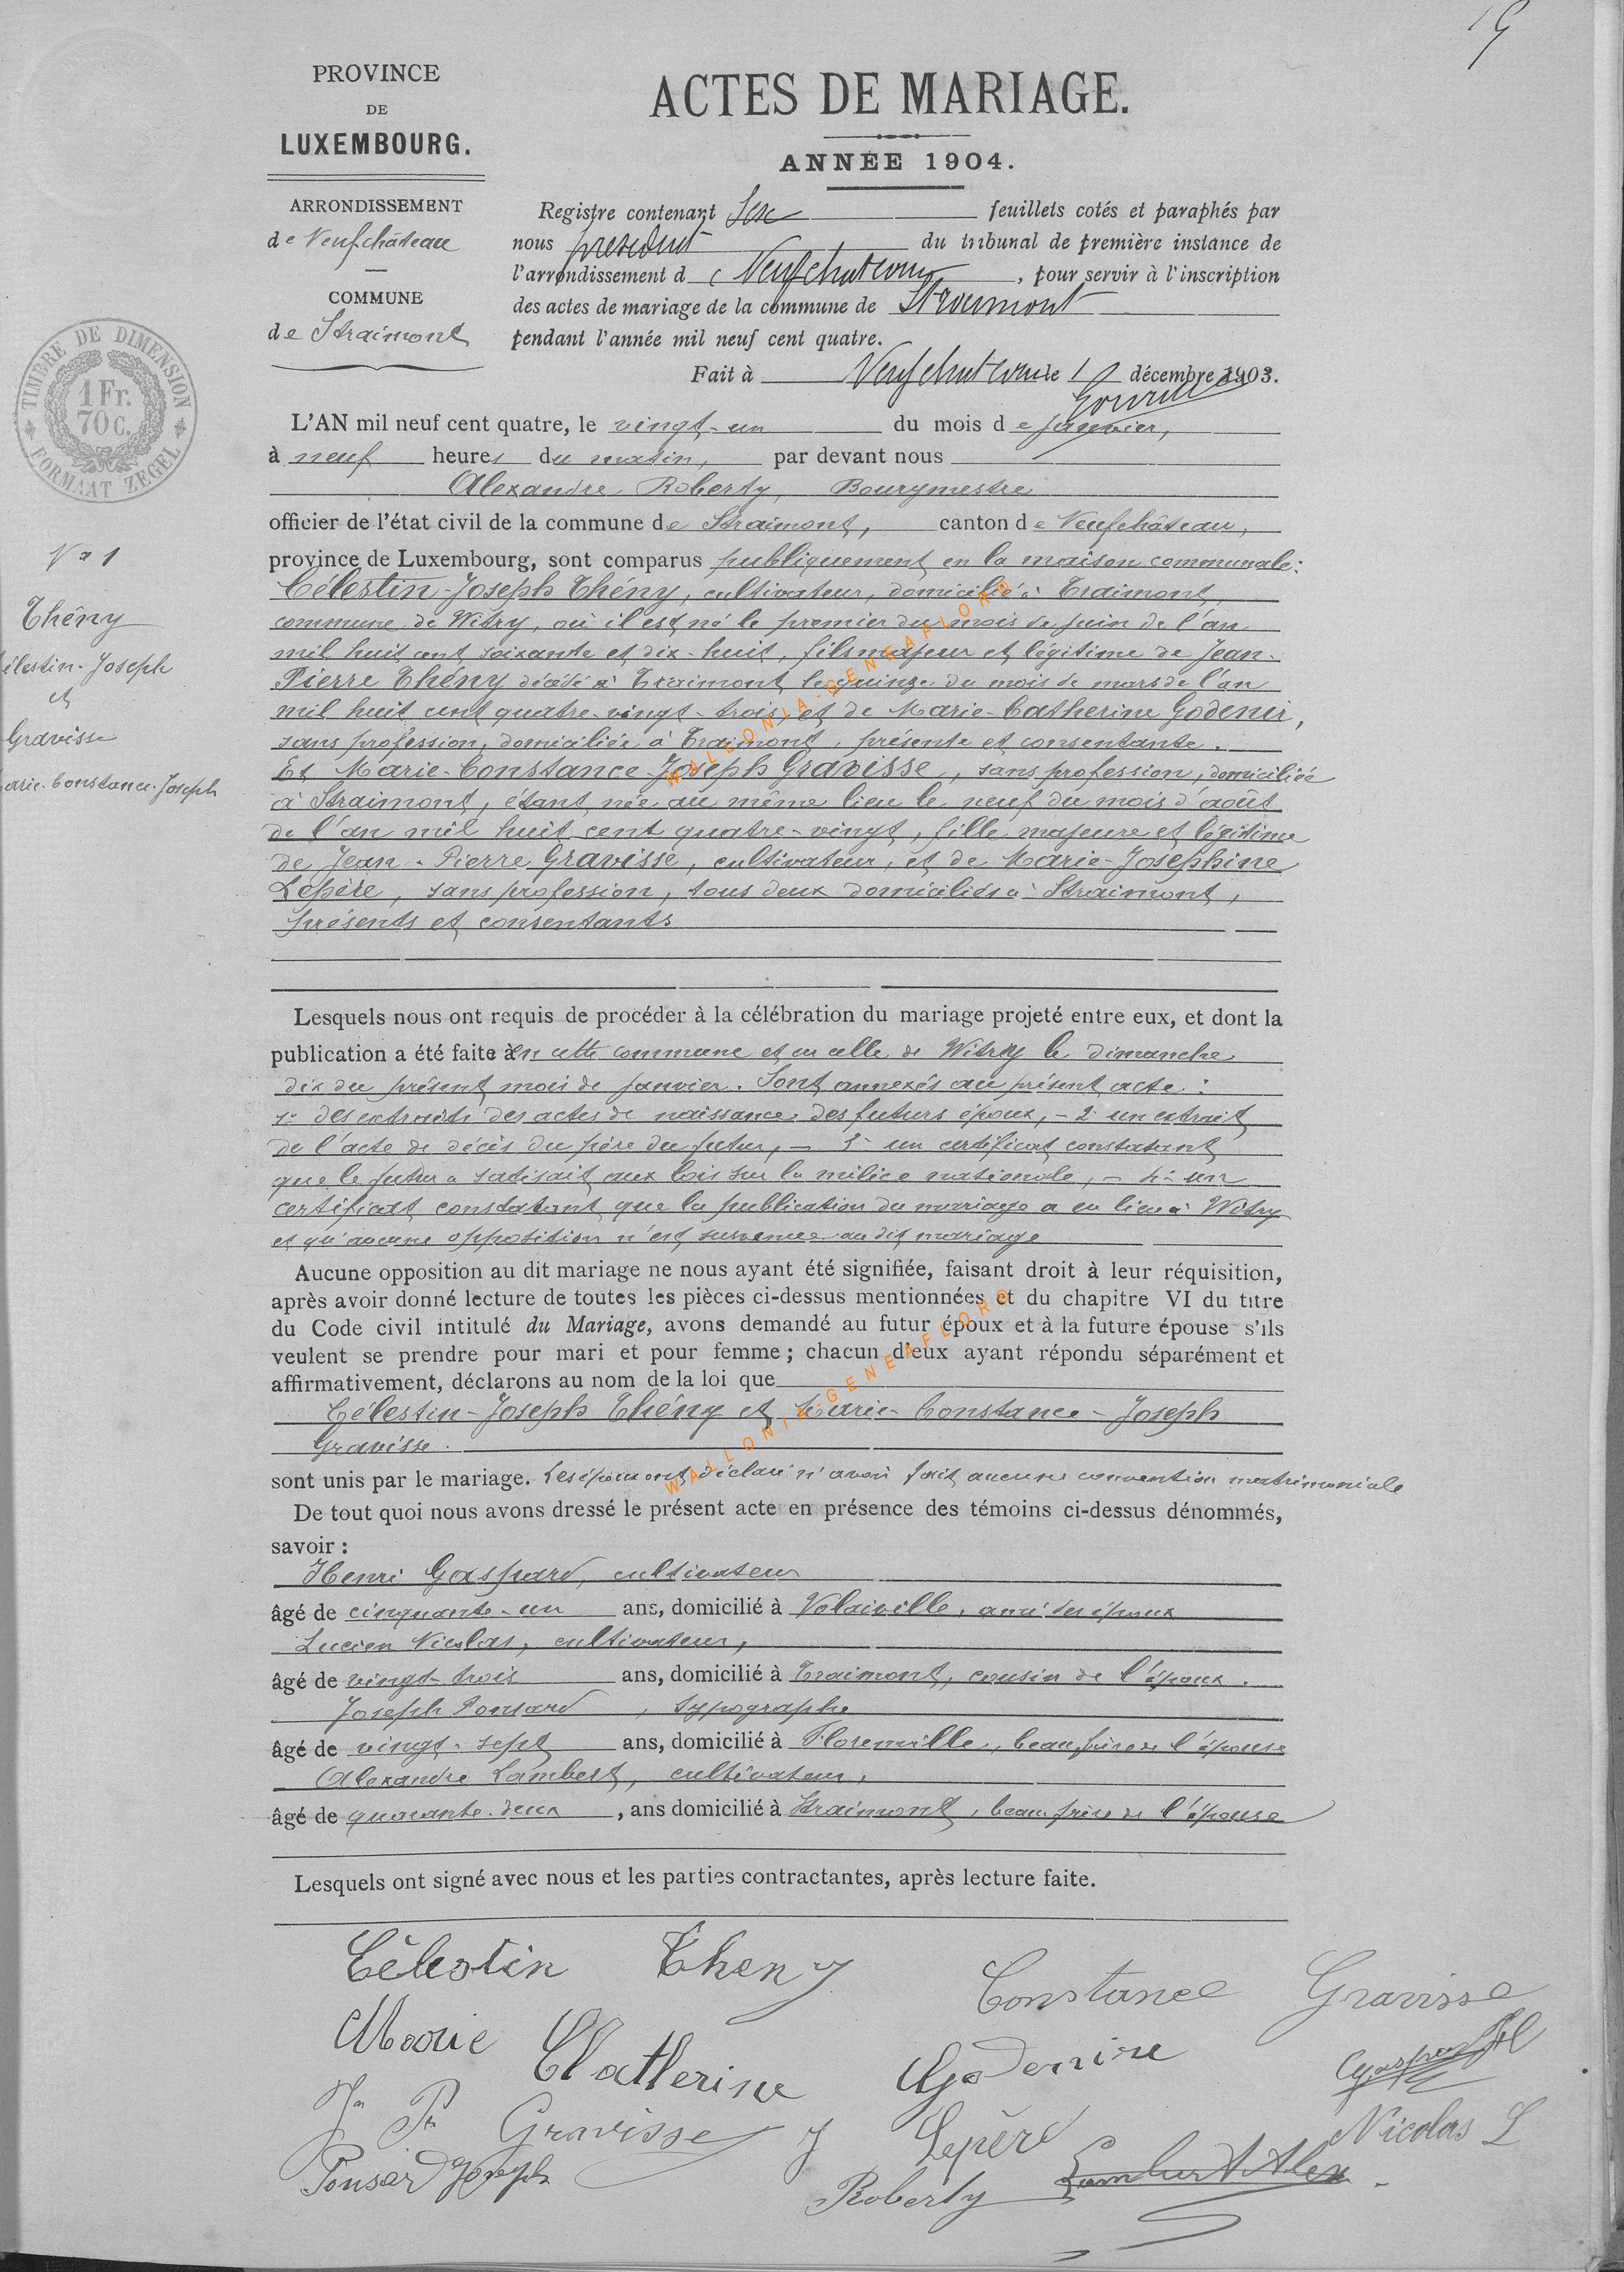 19
PROVINCE
DE
LUXEMBOURG.
ARRONDISSEMENT
de Neufchâteau
COMMUNE
de Straimont
TIMBRE DE DIMENSION
1 Fr.
70 C.
FORMAAT ZEGEL
ACTES DE MARIAGE.
ANNÉE 1904.
Registre contenant Six feuillets cotés et paraphés par
nous président du tribunal de première instance de
l'arrondissement de Neufchateau, pour servir à l'inscription
des actes de mariage de la commune de Straimont
pendant l'année mil neuf cent quatre.
Fait à Neufchateau le décembre 1903.
L'AN mil neuf cent quatre, le vingt-un du mois de janvier,
à neuf heures du matin, par devant nous
Alexandre Roberty, Bourgmestre
officier de l'état civil de la commune de Straimont, canton de Neufchâteau,
province de Luxembourg, sont comparus publiquement en la maison communale:
N° 1
Thény
élestin-Joseph
et
Gravisse
arie-Constance-Joseph
Célestin-Joseph Thény, cultivateur, domicilié à Traimont,
commune de Witry, où il est né le premier du mois de juin de l'an
mil huit cent soixante et dix-huit, fils majeur et légitime de Jean-
Pierre Thény décédé à Traimont le quinze du mois de mars de l'an
mil huit cent quatre-vingt-trois et de Marie-Catherine Godenir,
sans profession, domiciliée à Traimont, présente et consentante.
Et Marie-Constance-Joseph Gravisse, sans profession, domiciliée
à Straimont, étant née au même lieu le neuf du mois d'août
de l'an mil huit cent quatre-vingt, fille majeure et légitime
de Jean-Pierre Gravisse, cultivateur, et de Marie-Joséphine
Lepère, sans profession, tous deux domiciliés à Straimont,
présents et consentants
WALLONIA-GENEAFLORE
Lesquels nous ont requis de procéder à la célébration du mariage projeté entre eux, et dont la
publication a été faite en cette commune et en celle de Witry le dimanche
dix du présent mois de janvier. Sont annexés au présent acte:
1° des extraits des actes de naissance des futurs époux, - 2° un extrait
de l'acte de décès du père du futur, - 3° un certificat constatant
que le futur a satisfait aux lois sur la milice nationale, - 4° un
certificat constatant que la publication du mariage a eu lieu à Witry
et qu'aucune opposition n'est survenue au dit mariage
Aucune opposition au dit mariage ne nous ayant été signifiée, faisant droit à leur réquisition,
après avoir donné lecture de toutes les pièces ci-dessus mentionnées et du chapitre VI du titre
du Code civil intitulé du Mariage, avons demandé au futur époux et à la future épouse s'ils
veulent se prendre pour mari et pour femme; chacun d'eux ayant répondu séparément et
affirmativement, déclarons au nom de la loi que
Célestin-Joseph Thény et Marie-Constance-Joseph
Gravisse.
WALLONIA-GENEAFLORE
sont unis par le mariage. Les époux ont déclaré n'avoir fait aucune convention matrimoniale
De tout quoi nous avons dressé le présent acte en présence des témoins ci-dessus dénommés,
savoir:
Henri Gaspard, cultivateur
âgé de cinquante-un ans, domicilié à Volaiville, ami des époux
Lucien Nicolas, cultivateur,
âgé de vingt-trois ans, domicilié à Traimont, cousin de l'époux.
Joseph Ponsard, typographe
âgé de vingt-sept ans, domicilié à Florenville, beau frère de l'épouse
Alexandre Lambert, cultivateur,
âgé de quarante-deux, ans domicilié à Straimont, beau frère de l'épouse
Lesquels ont signé avec nous et les parties contractantes, après lecture faite.
Célestin Theny
Constance Gravisse
Marie Catherine Godenire
Gaspard H
Jn Pre Gravisse J Lepère
Nicolas L
Ponsard Joseph
Roberty Lambert Alex